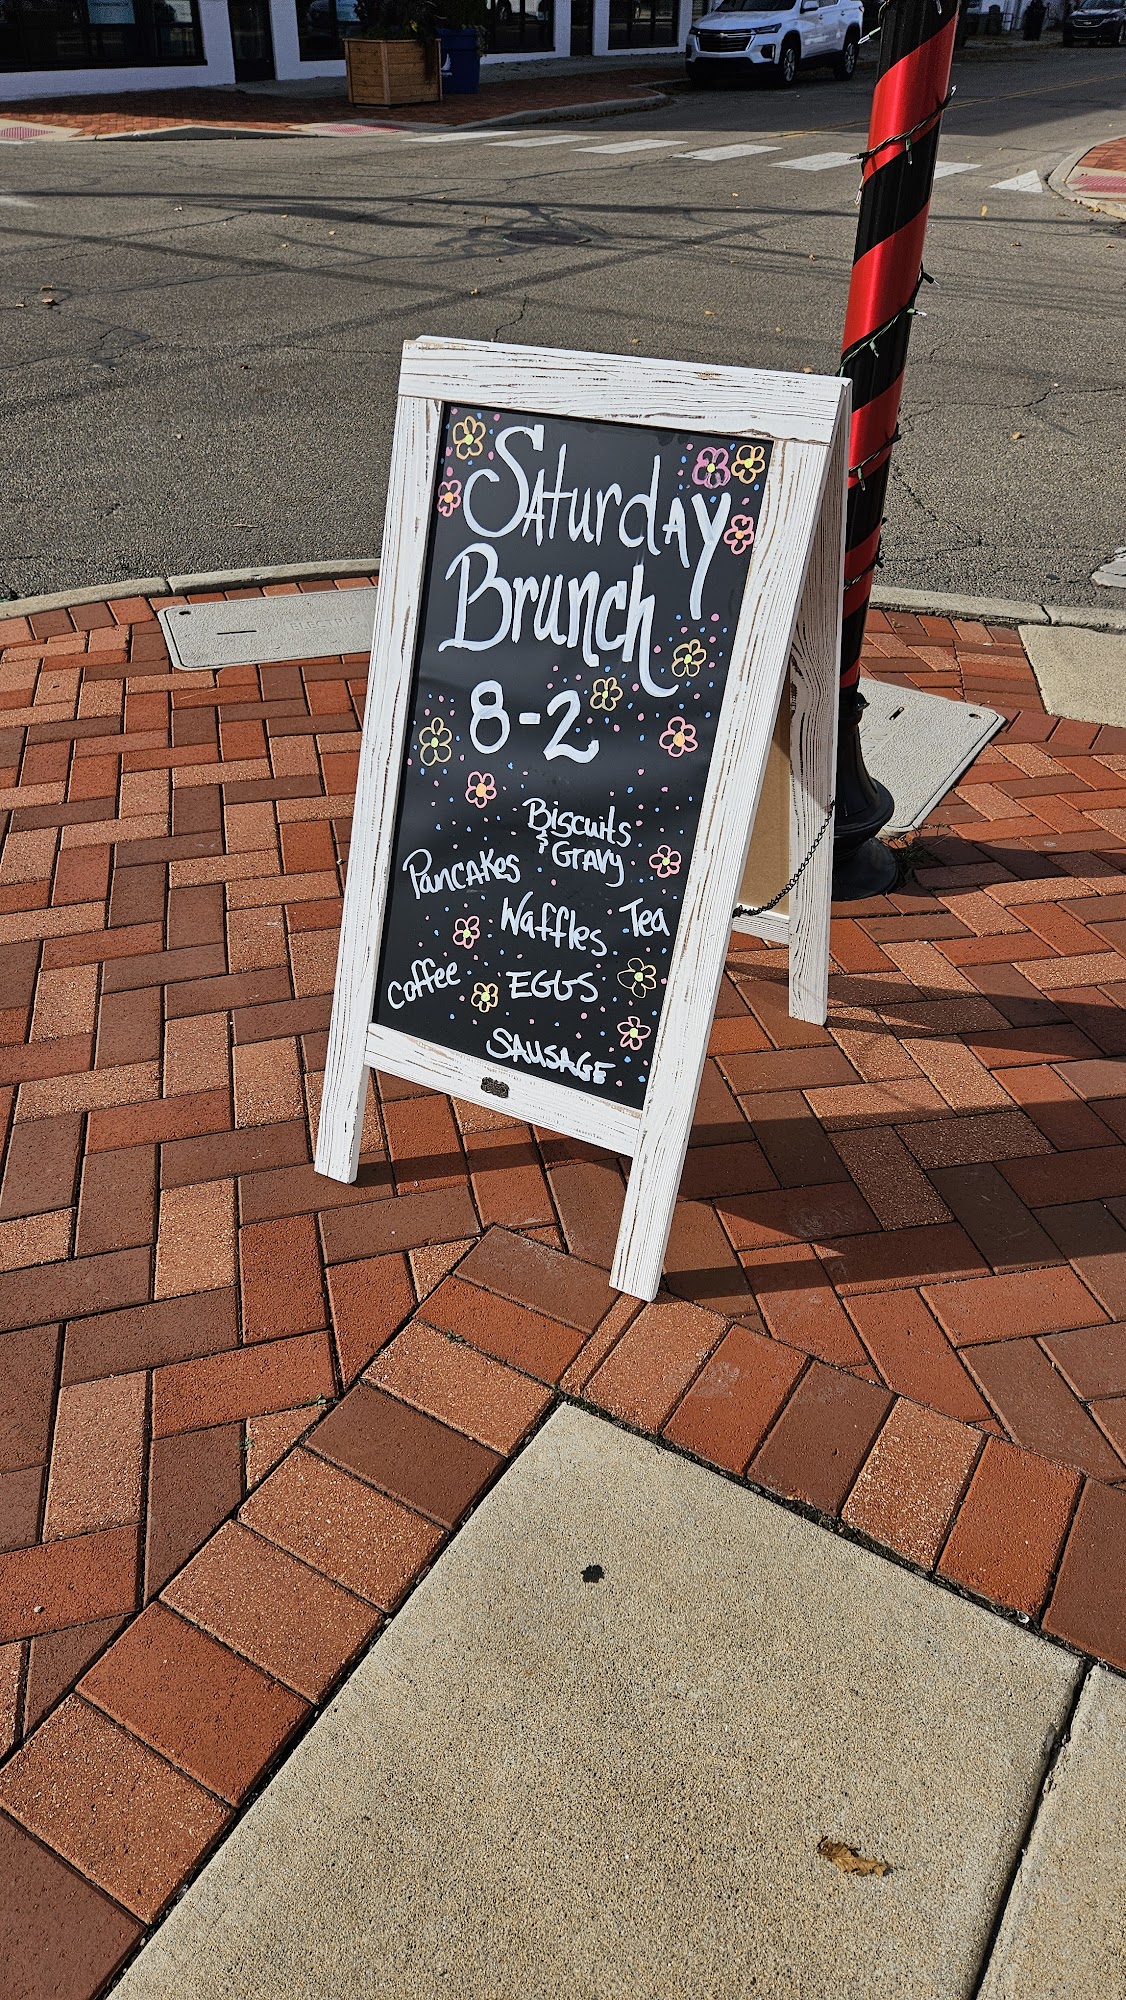 Saturday
Brunch
8-2
Biscuits
& Gravy
Pancakes
Waffles
Tea
Coffee
EGGS
SAUSAGE